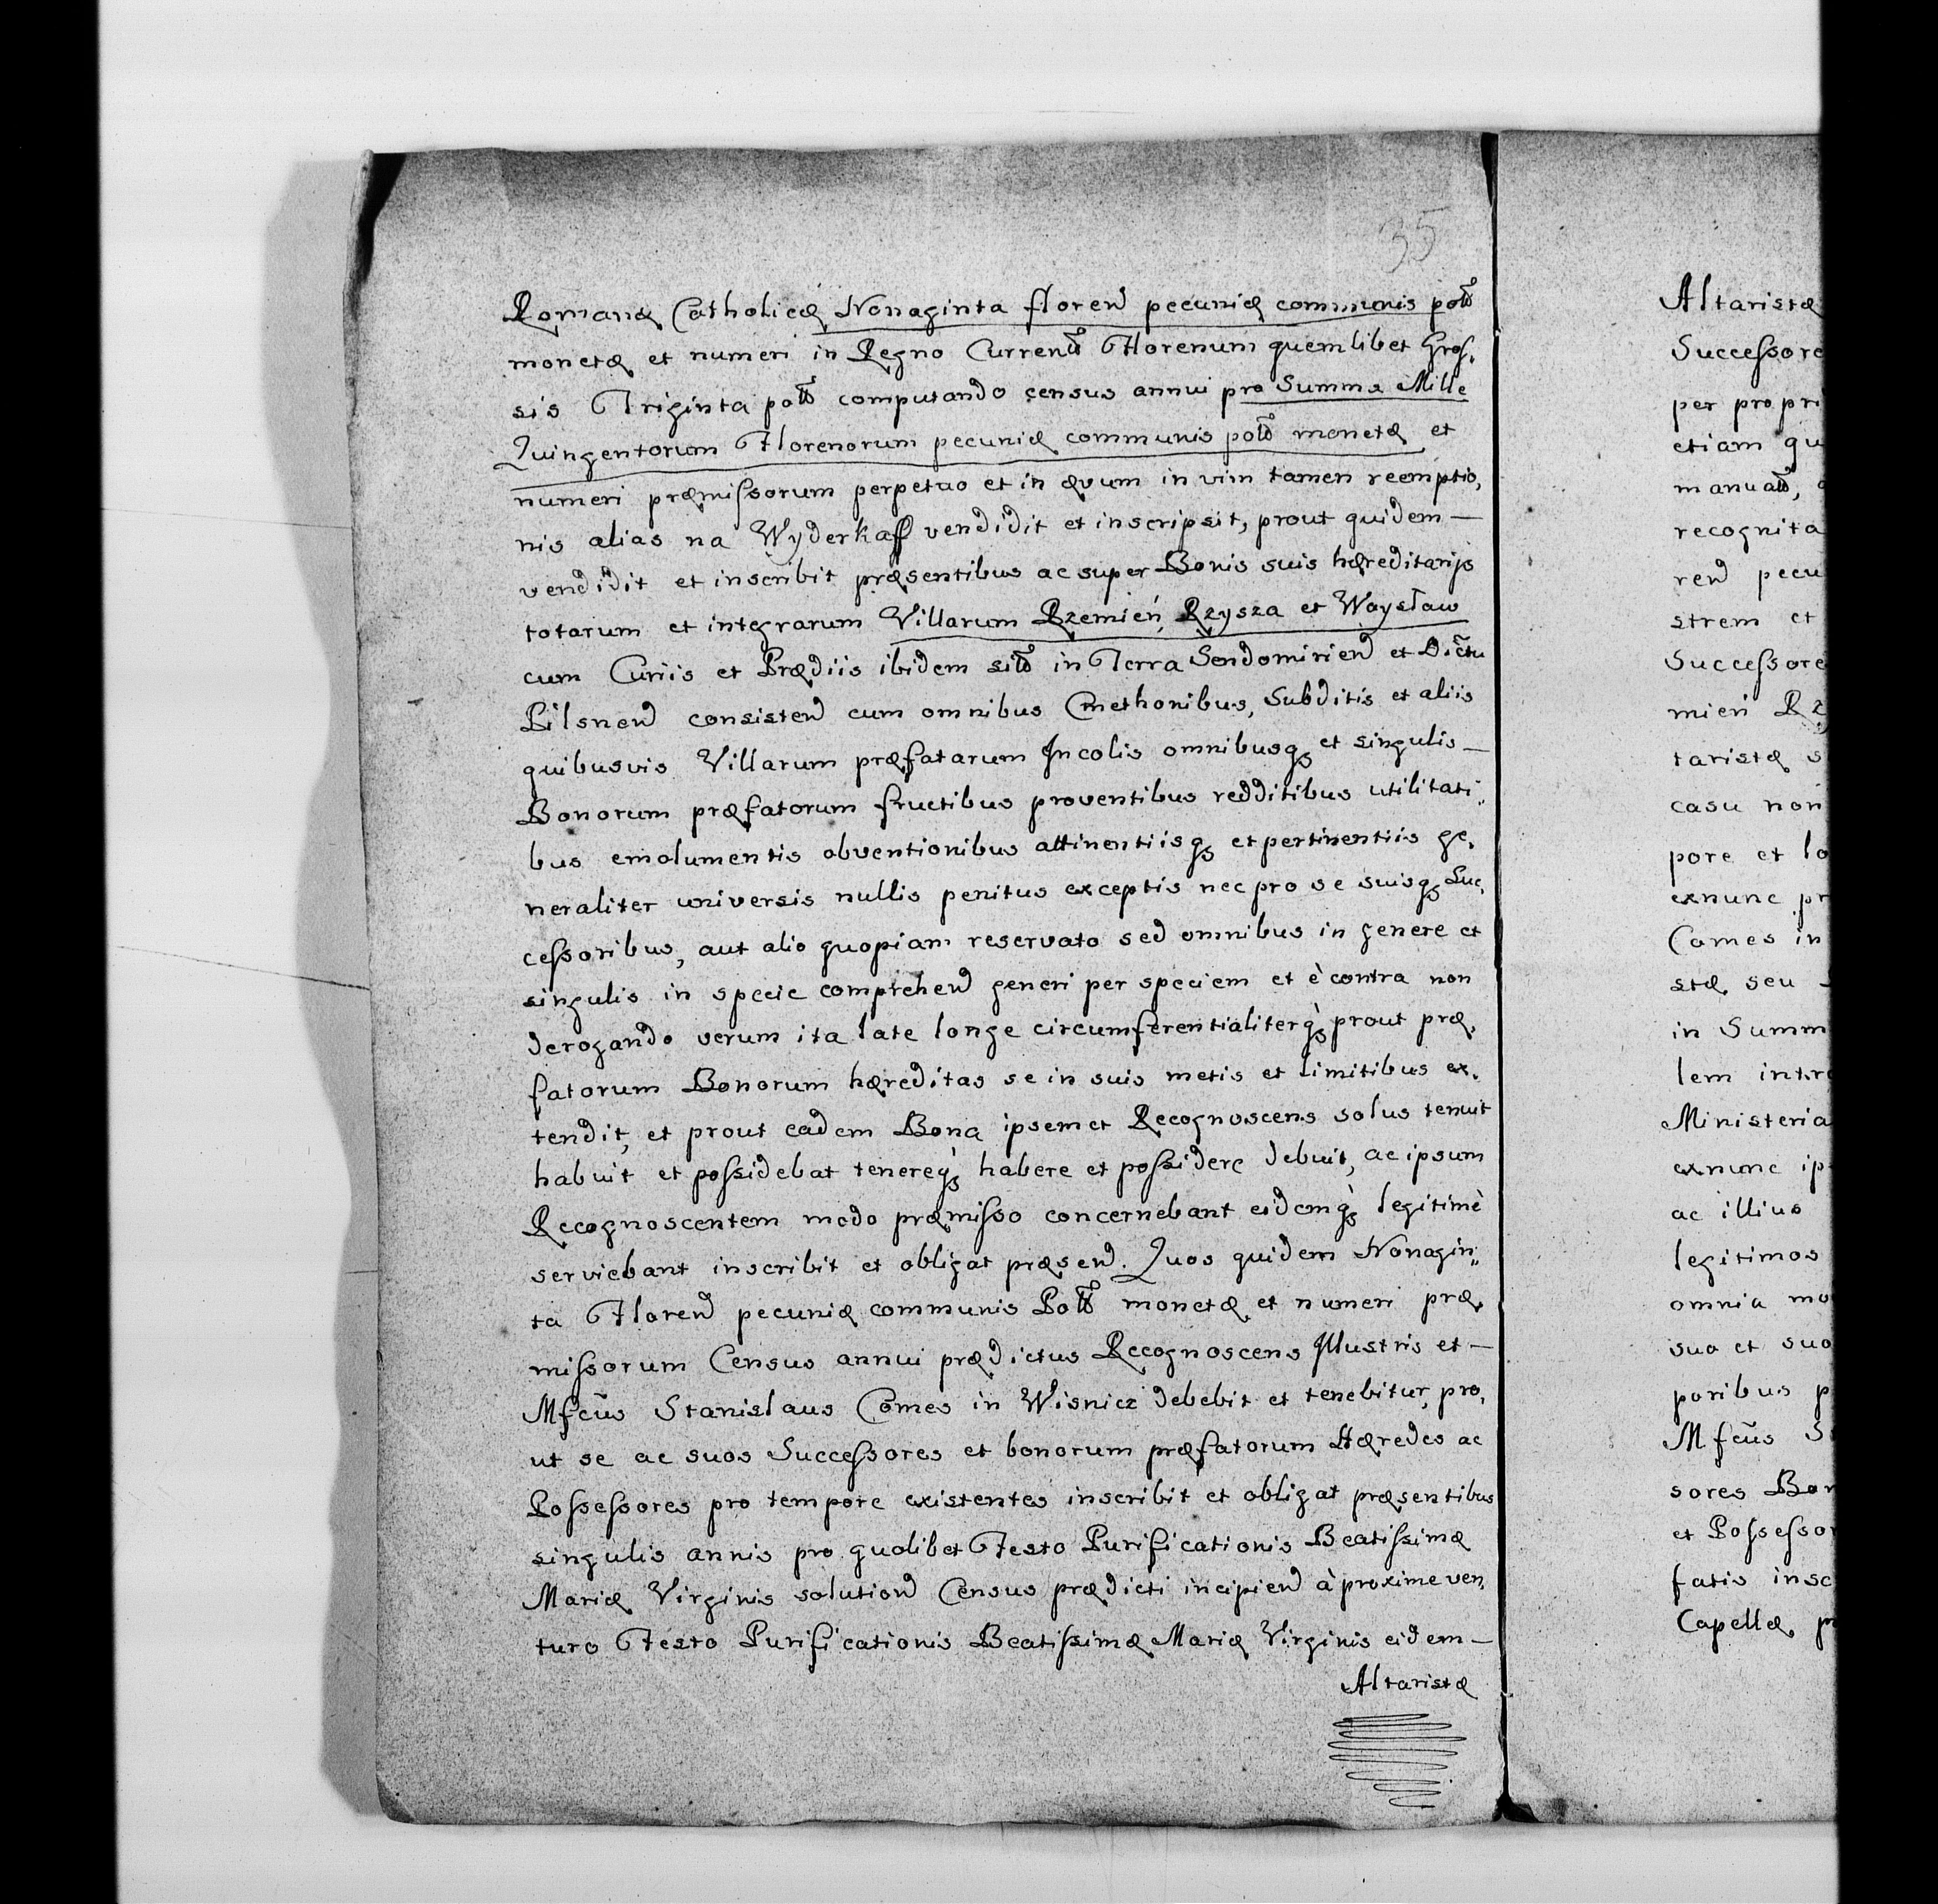 35
Romanæ Catholicæ Nonaginta floren pecuniæ communis poltis
monetæ et numeri in Regno Curren Florenum quemlibet Gros,
sis Triginta polt computando census annui pro Summa Mille
Quingentorum Florenorum pecuniæ communis polt monetæ et
numeri præmissorum perpetuo et in ævum in vim tamen reemptio,
nis alias na Wyderkaff vendidit et inscripsit, prout quidem —
vendidit et inscribit præsentibus ac super Bonis suis hæreditarijs
totarum et integrarum Villarum Rzemień, Rzysza et Waysław
cum Curiis et Prædiis ibidem sit in Terra Sendomirien et Dictu
Pilsnen consisten cum omnibus Cmethonibus, Subditis et aliis
quibusvis Villarum præfatarum Incolis omnibusq et singulis —
Bonorum præfatorum fructibus proventibus redditibus utilitati,,
bus emolumentis obventionibus attinentiisq et pertinentiis ge,
neraliter universis nullis penitus exceptis nec pro se suisq Suc,
cessoribus, aut alio quopiam reservato sed omnibus in genere et
singulis in specie comprehen generi per speciem et è contra non
derogando verum ita late longe circumferentialiterq prout præ,
fatorum Bonorum hæreditas se in suis metis et limitibus ex,
tendit, et prout eadem Bona ipsemet Recognoscens solus tenuit
habuit et possidebat tenereq habere et possidere debuit, ac ipsum
Recognoscentem modo præmisso concernebant eidemq legitimè
serviebant inscribit et obligat præsen. Quos quidem Nonagin,,
ta Floren pecuniæ communis Polt monetæ et numeri præ,
missorum Census annui prædictus Recognoscens Illustris et —
Mfcus Stanislaus Comes in Wisnicz debebit et tenebitur, pro,
ut se ac suos Successores et bonorum præfatorum Hæredes ac
Possessores pro tempore existentes inscribit et obligat præsentibus
singulis annis pro quolibet Festo Purificationis Beatissimæ
Mariæ Virginis solution Census prædicti incipien à proxime ven,
turo Festo Purificationis Beatissimæ Mariæ Virginis eidem —
Altaristæ
Altaristæ
Successore
per propri
etiam qu
manuat,
recognita
ren pecu
strem et
Successore
mień Rz
taristæ s
casu non
pore et lo
exnunc pr
Comes in
stæ seu
in Summ
lem intro
Ministeria
exnunc ip
ac illius
legitimos
omnia mo
sua et suo
poribus p
Mfcus S
sores Bon
et Possessor
fatis insc
Capellæ, pr